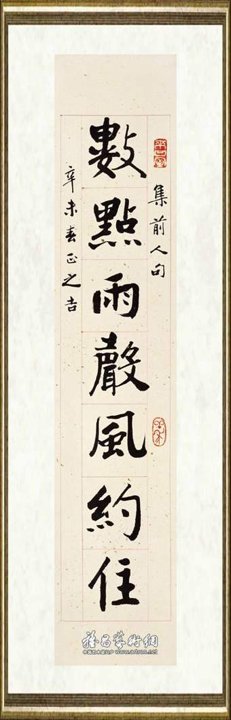 集前人句
數點雨聲風約住
辛未春正之吉
www.artxun.com